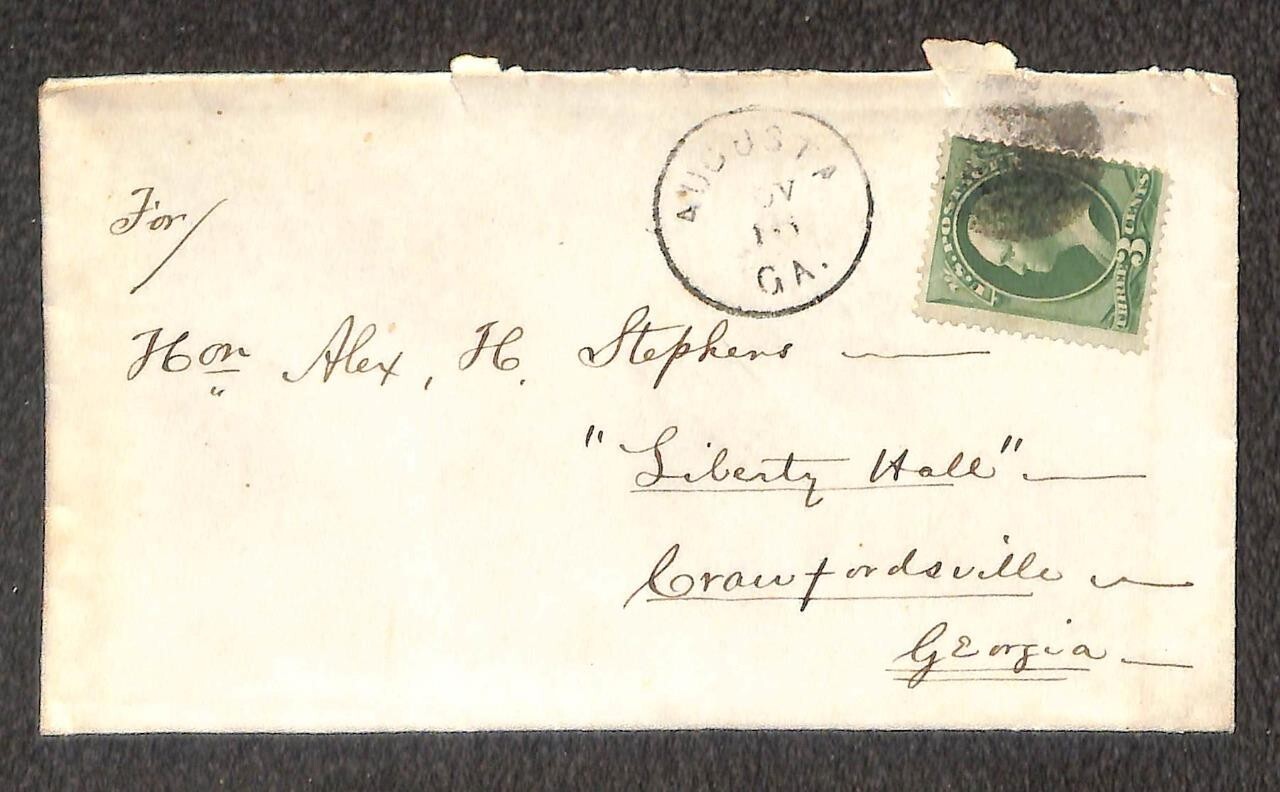 AUGUSTA
GA.
U.S. POSTAGE
3
CENTS
For/
Hon Alex, H. Stephens
"Liberty Hall"
Crawfordsville
Georgia